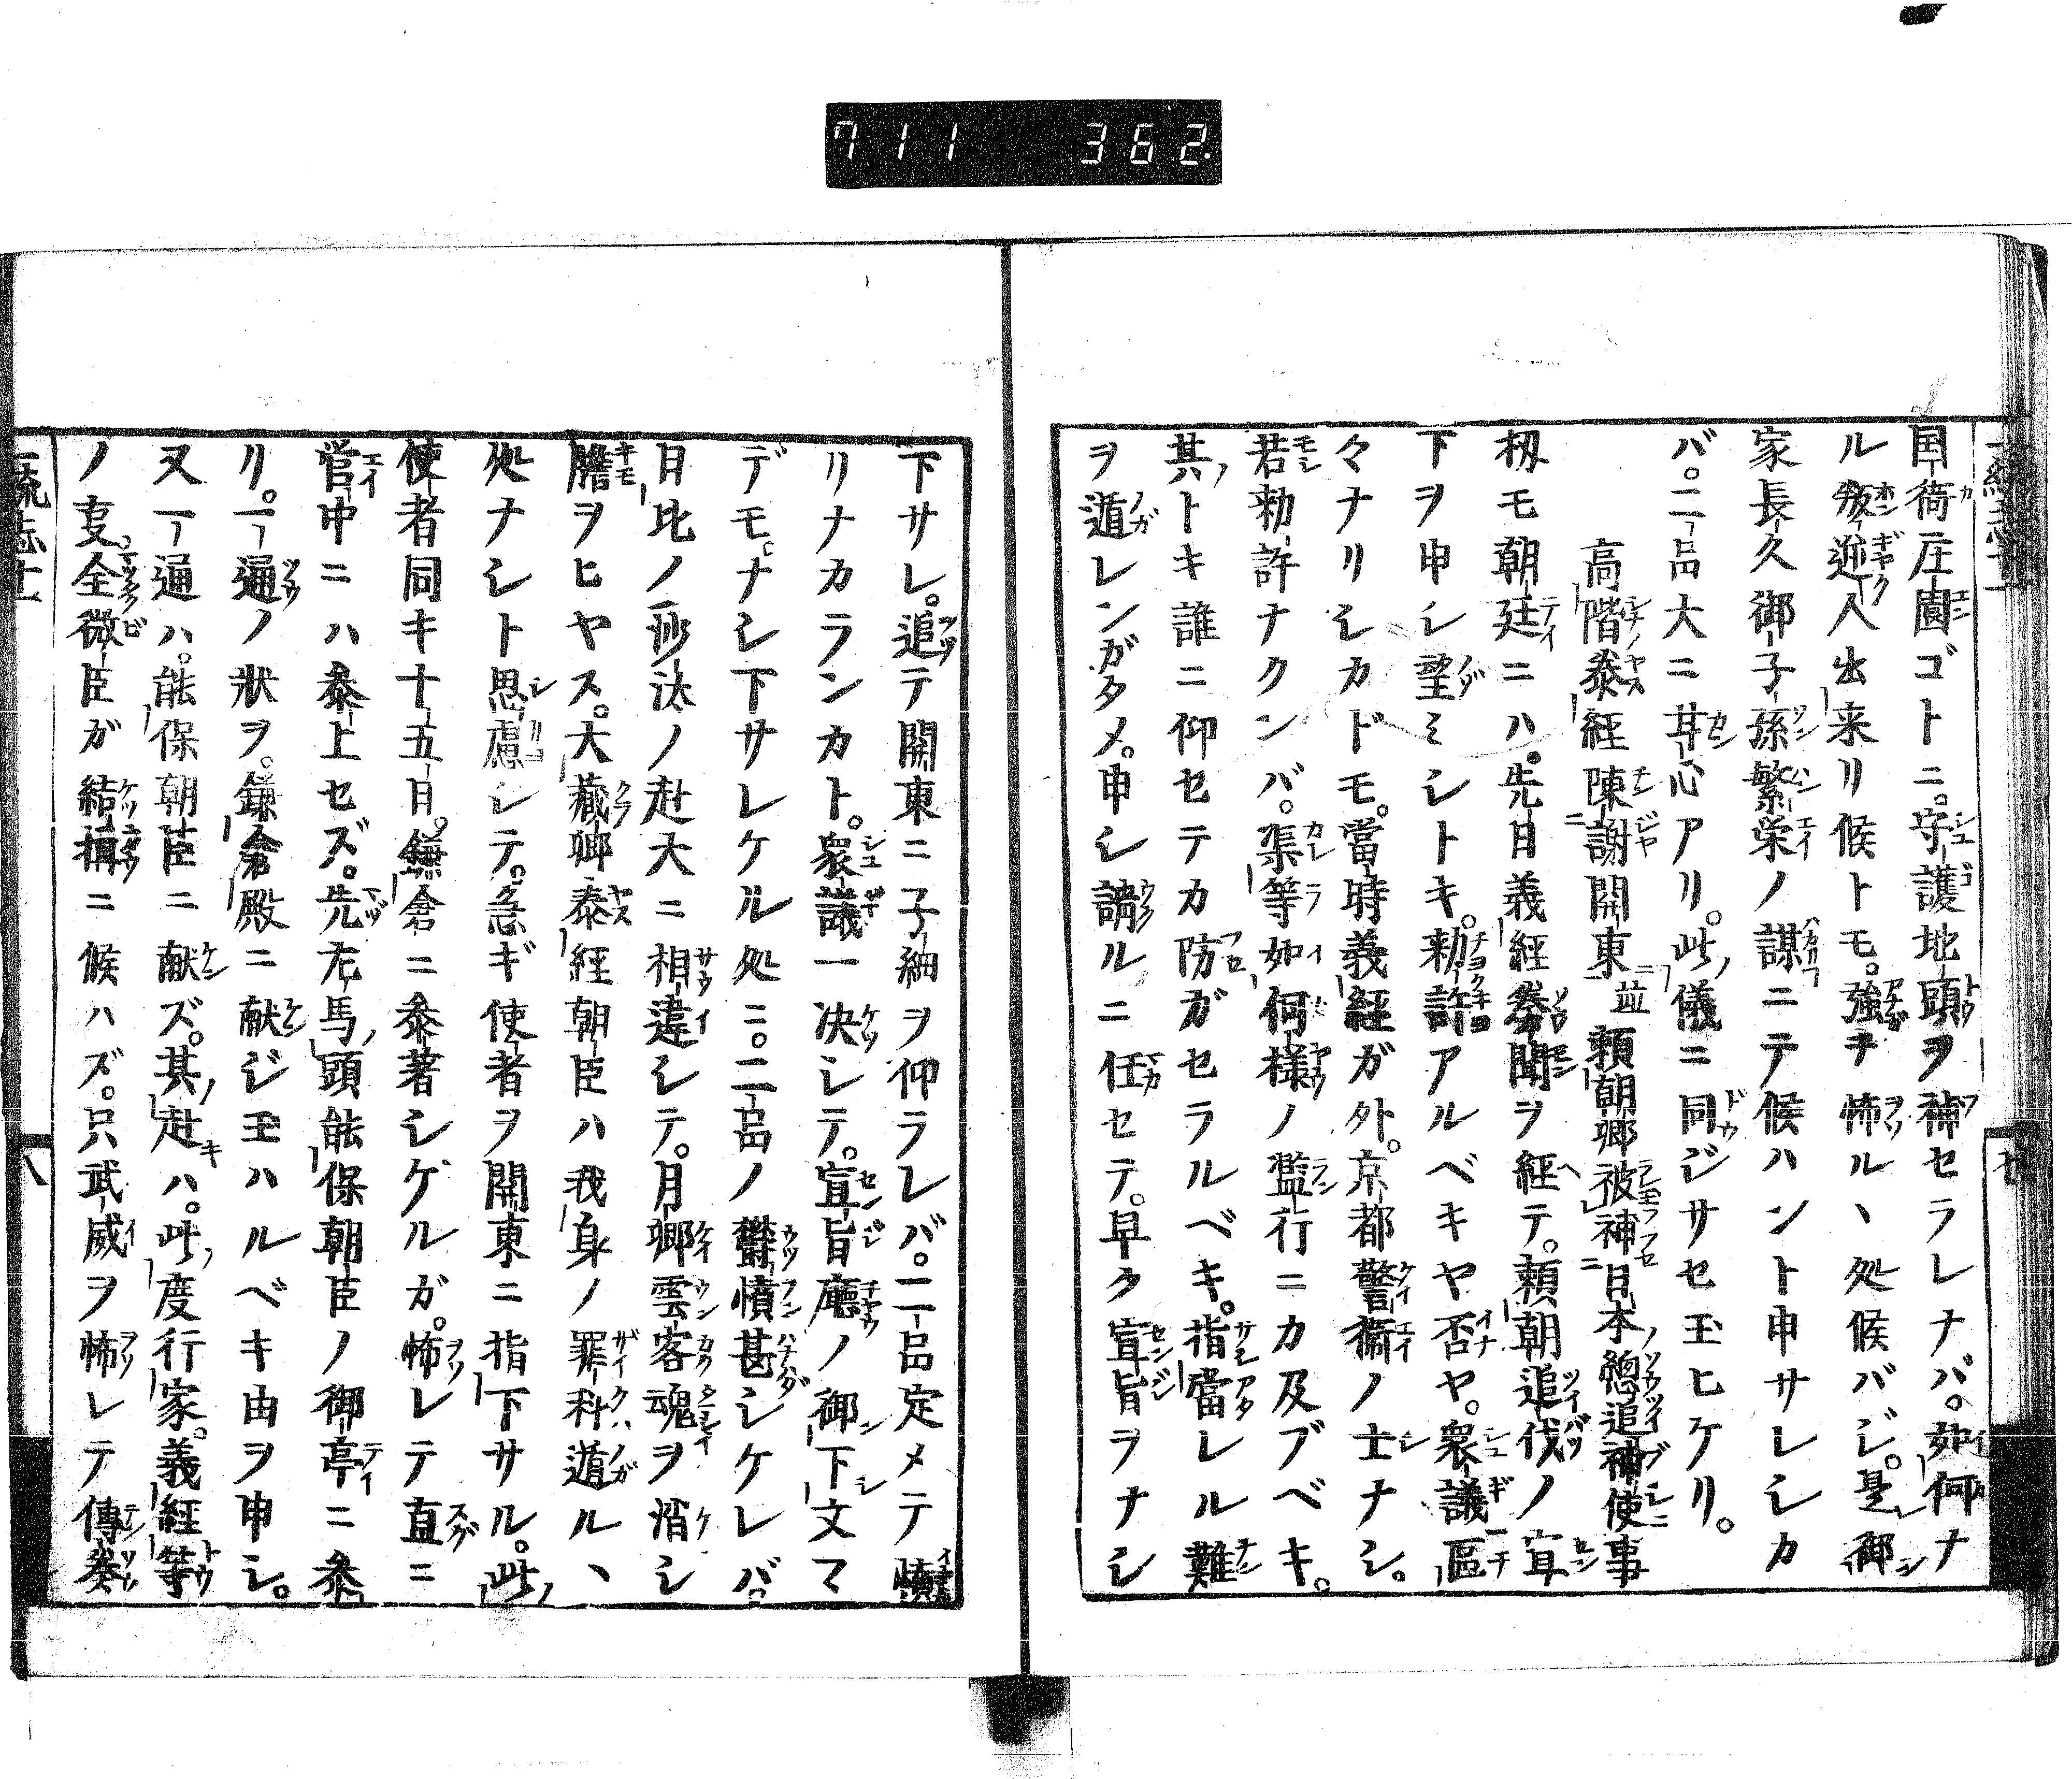 711 362.
国衙庄園ゴトニ。守護地頭ヲ補セラレナバ。如何ナ
ル叛逆人出来リ候トモ。強チ怖ルヽ処候バジ。是御
家長久御子孫繁栄ノ謀ニテ候ハント申サレシカ
バ。二品大ニ甘心アリ。此儀ニ同ジサセ玉ヒケリ。
高階泰経陳謝関東並頼朝卿被補日本総追補使事
扨モ朝廷ニハ。先日義経奏聞ヲ経テ。頼朝追伐ノ宣
下ヲ申シ望ミシトキ。勅許アルベキヤ否ヤ。衆議区
々ナリシカドモ。當時義経ガ外。京都警衛ノ士ナシ。
若勅許ナクンバ。渠等如何様ノ濫行ニカ及ブベキ。
其トキ誰ニ仰セテカ防ガセラルベキ。指當レル難
ヲ遁レンガタメ。申シ請ルニ任セテ。早ク宣旨ヲナシ
下サレ。追テ関東ニ子細ヲ仰ラレバ。二品定メテ憤
リナカランカト。衆議一决シテ。宣旨廳ノ御下文マ
デモ。ナシ下サレケル処ニ。二品ノ欝憤甚シケレバ。
日比ノ沙汰ノ赴大ニ相違シテ。月卿雲客魂ヲ消シ
膽ヲヒヤス。大蔵卿泰経朝臣ハ我身ノ罪科遁ルヽ
処ナシト思慮シテ。急ギ使者ヲ関東ニ指下サル。此
使者同キ十五日。鎌倉ニ参著シケルガ。怖レテ直ニ
営中ニハ参上セズ。先左馬頭能保朝臣ノ御亭ニ参
リ。一通ノ状ヲ。鎌倉殿ニ献ジ玉ハルベキ由ヲ申シ。
又一通ハ。能保朝臣ニ献ズ。其赴ハ。此度行家。義経等
ノ支。全微臣ガ結構ニ候ハズ。只武威ヲ怖レテ傳奏
八